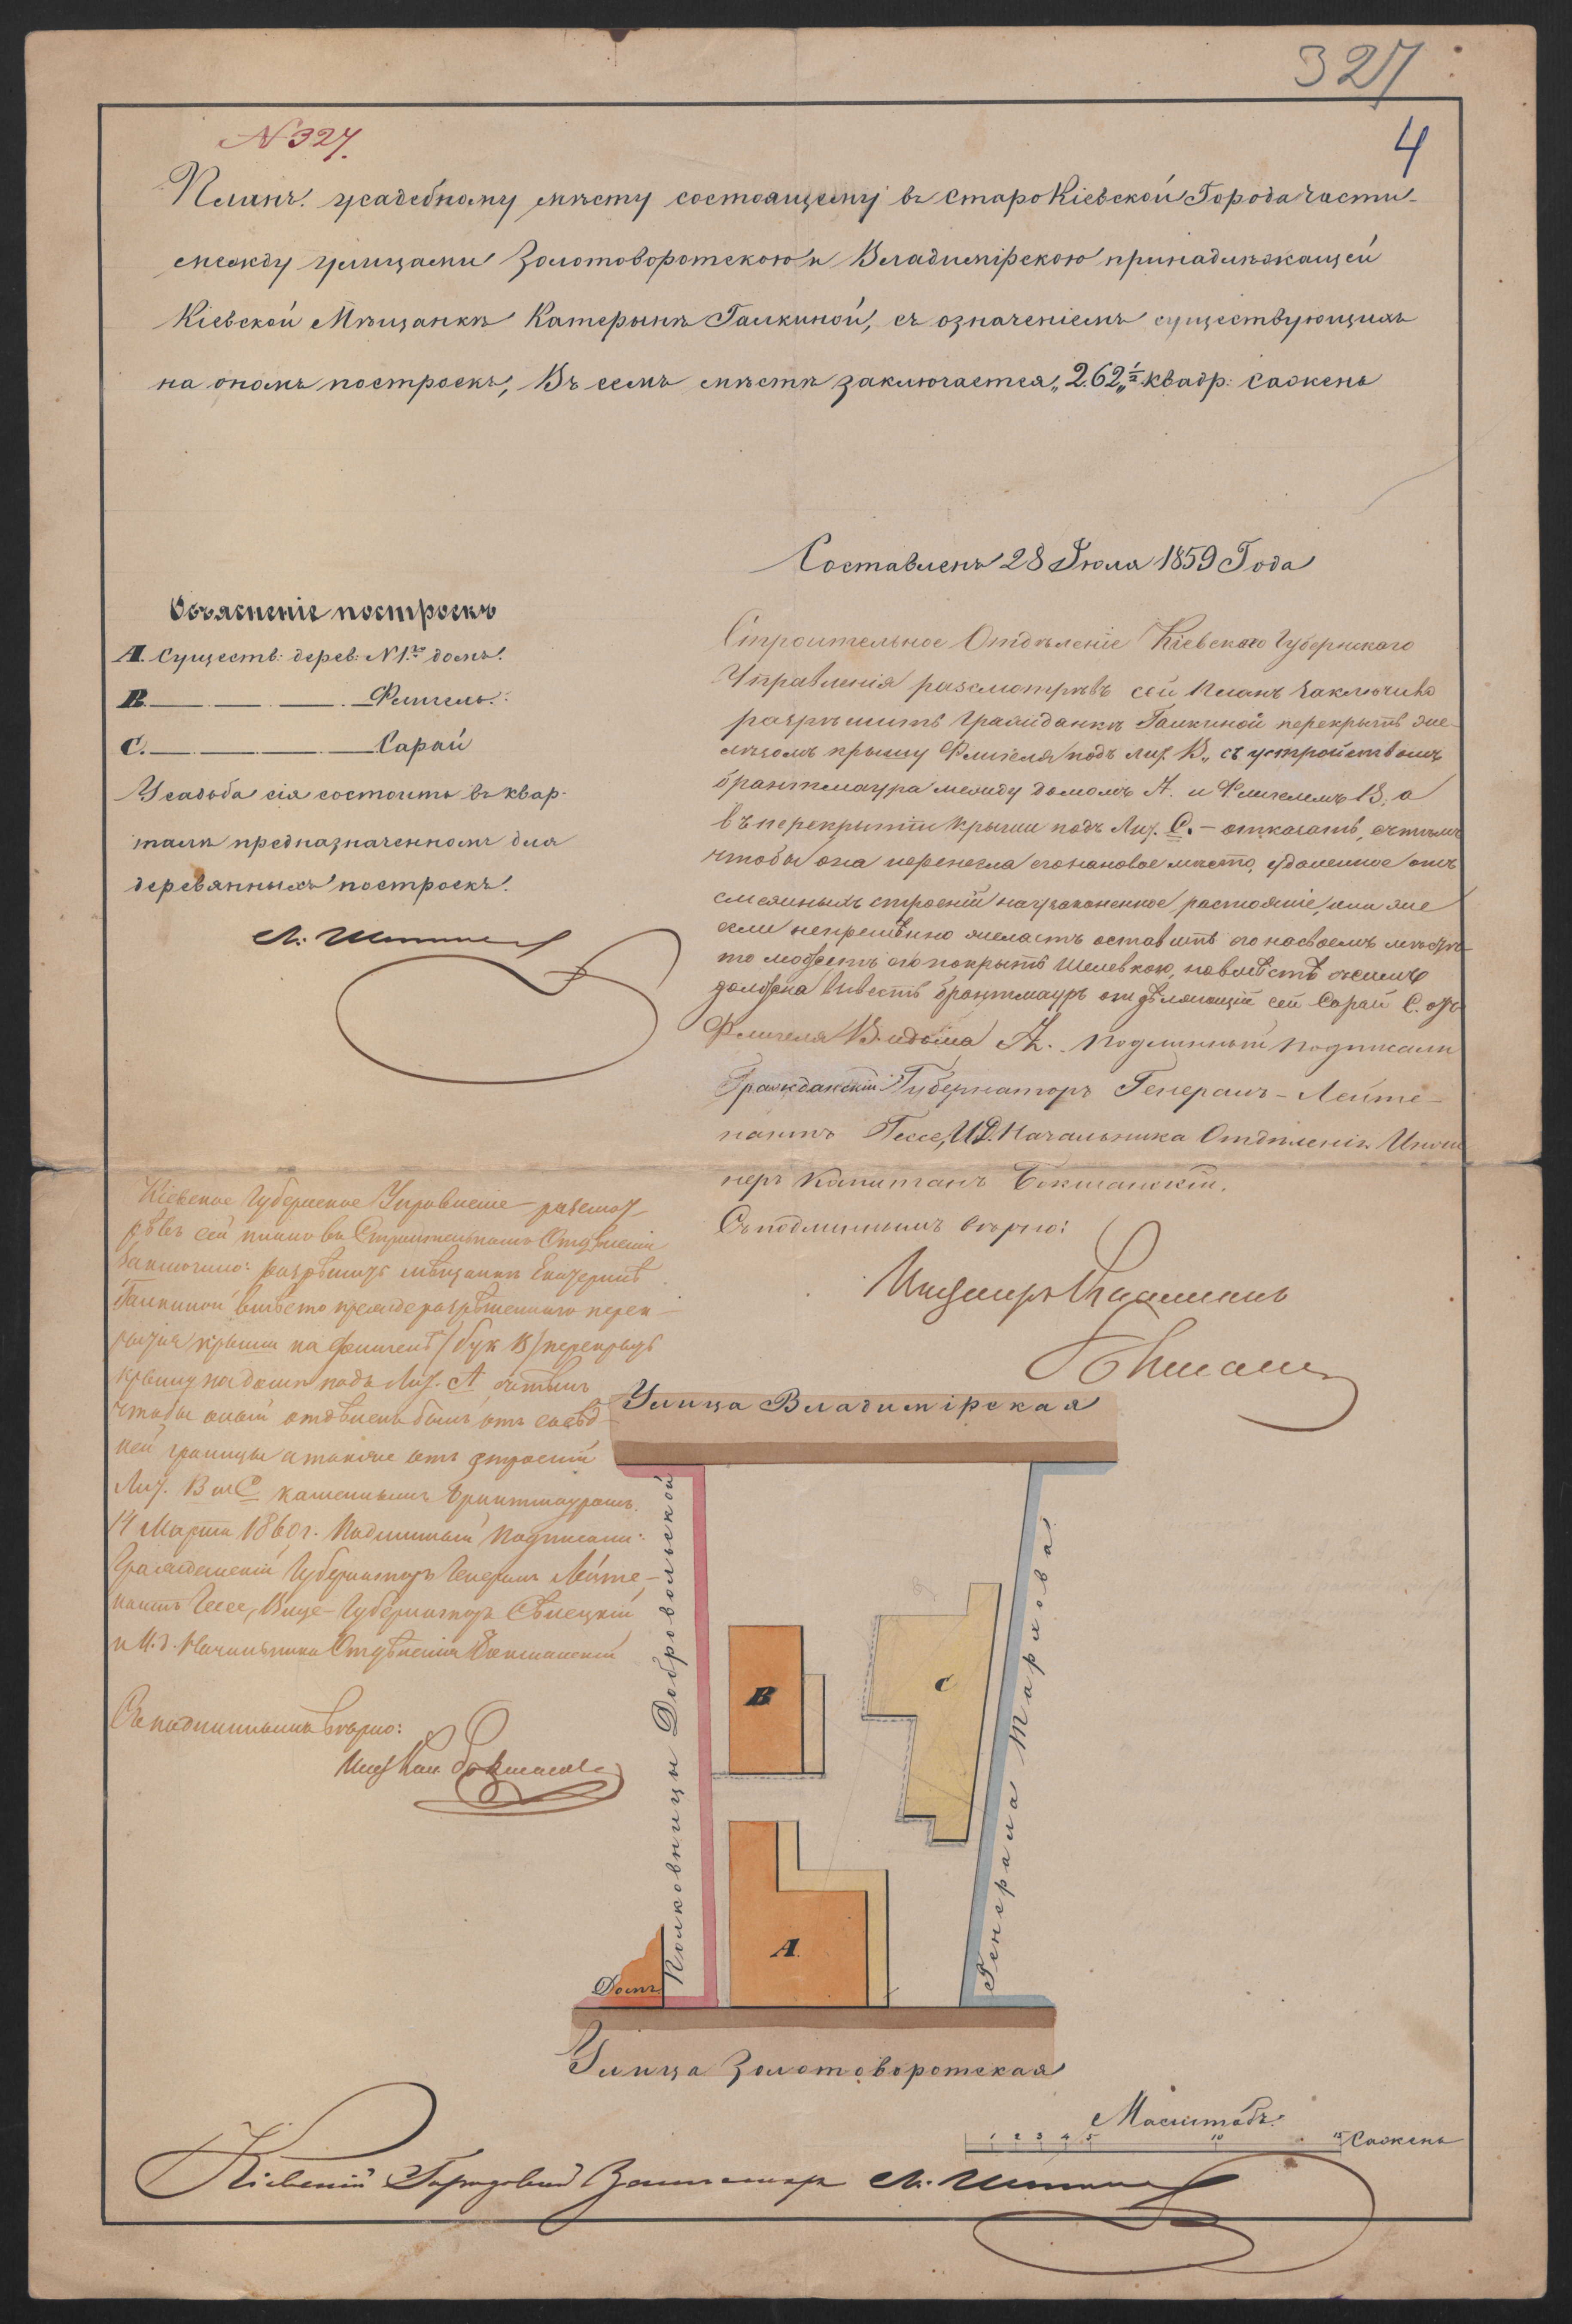 327
4
N 327.
Планъ усадебному мѣсту состоящему въ СтароКіевской Города части
между улицами Золотоворотскою и Владимірскою принадлежащей
Кіевской Мѣщанкѣ Катерынѣ Галкиной, съ означеніемъ существующихъ
на ономъ построекъ, Въ семъ мѣстѣ заключается „262„½ квадр: сажень
Составленъ 28 Іюля 1859 Года
Объясненіе построекъ
А. Существ: дерев: N1.го домъ.
В. Флигель.
С. Сарай
Усадьба сія состоитъ въ квар-
талѣ предназначенномъ для
деревянныхъ построекъ.
Строительное Отдѣленіе Кіевского Губернского
Управленія разсмотрѣвъ сей планъ заключило
разрѣшить Гражданкѣ Галкиной перекрыть же-
лѣзомъ крышу Флигеля подъ лит. В„ съ устройствомъ
брантмаура между домомъ А. и Флигелемъ В; а
въ перекрытіи крыши подъ Лит. С. – отказать, съ тѣмъ
чтобы она перенесла его на новое мѣсто, удаленное отъ
смежныхъ строеній на узаконенное растояніе, или же
если непремѣнно желаетъ оставить его на своемъ мѣстѣ
то можетъ его покрыть шелевкою, но вмѣстѣ съ симъ
должна вывесть брантмауръ отдѣляющій сей Сарай С. отъ
Флигеля В. и дома А. Подлинный подписали
Гражданскій Губернаторъ Генералъ-Лейте-
нантъ Гессе, И.Д. Начальника Отдѣленія Инже
неръ Капитанъ Бокшанскій.
Съ подлиннымъ вѣрно:
Инженеръ Капитанъ
Кіевское Губернское Управленіе разсмот-
рѣвъ сей планъ въ Строительномъ Отдѣленіи
Заключило: разрѣшить мѣщанкѣ Екатеринѣ
Галкиной вмѣсто прежде разрѣшеннаго перек-
рытія крыши на флигелѣ /бук В/ перекрыть
крышу на домѣ подъ Лит. А съ тѣмъ
чтобы оный отдѣленъ былъ отъ сосѣд-
ней границы а также отъ строеній
Лит. В и С каменнымъ брантмауромъ.
14 Марта 1860 г. Подлинный подписали:
Гражданскій Губернаторъ Генералъ Лейте-
нантъ Гессе, Вице-Губернаторъ Селецкій
и И.д. Начальника Отдѣленія Бокшанскій
Съ подлиннымъ вѣрно:
Инж Кап. Бокшанскій
Улица Владимірская
Полковницы Добровольской
Генерала Маркова
В
С
А.
Домъ
Улица Золотоворотская
Масштабъ.
1 2 3 4 5 10 15 Сажень
Кіевскій Городовый Землемѣръ